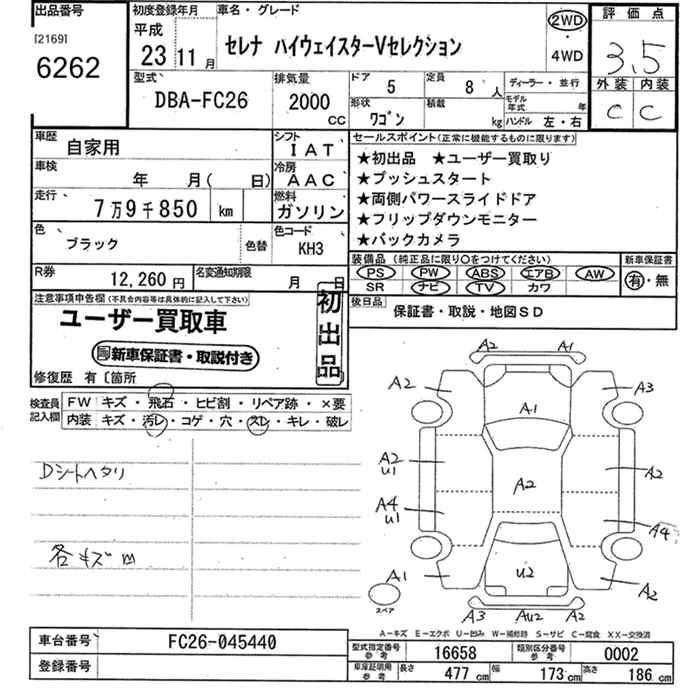 出品番号
[2169]
6262
初度登録年月
平成
23 11 月
車名・グレード
セレナ ハイウェイスターVセレクション
2WD
・
4WD
評価点
3.5
外装 内装
C C
型式
DBA-FC26
排気量
2000
CC
ドア 5 定員 8 人
ディーラー・並行
形状 ワゴン 積載 kg
モデル年式 年
ハンドル 左・右
車歴 自家用
シフト IAT
車検 年 月( 日)
冷房 AAC
走行 7万9千850 km
燃料 ガソリン
色 ブラック 色替
色コード KH3
R券 12,260円
名変通知期限 月 日
セールスポイント(正常に機能するものに限ります)
★初出品 ★ユーザー買取り
★プッシュスタート
★両側パワースライドドア
★フリップダウンモニター
★バックカメラ
装備品 (純正品に限り○をつけてください)
PS PW ABS エアB AW
SR ナビ TV カワ
新車保証書
有・無
後日品 保証書・取説・地図SD
注意事項申告欄(不具合内容等は具体的に記入して下さい)
ユーザー買取車
新車保証書・取説付き
初出品
修復歴 有〔箇所
検査員記入欄
FW キズ・飛石・ヒビ割・リペア跡・×要
内装 キズ・汚レ・コゲ・穴・スレ・キレ・破レ
Dシートヘタリ
各キズ凹
A2 A1
A2 A3
A1
A2 U1 A2 A2
A4 U1 A4
A1 U2 A2
スペア
A3 AU2 A2
A-キズ E-エクボ U-凹み W-補修跡 S-サビ C-腐食 XX-交換済
車台番号 FC26-045440
登録番号
型式指定番号 参考 16658
類別区分番号 参考 0002
車庫証明用 参考 長さ 477 cm 幅 173 cm 高さ 186 cm